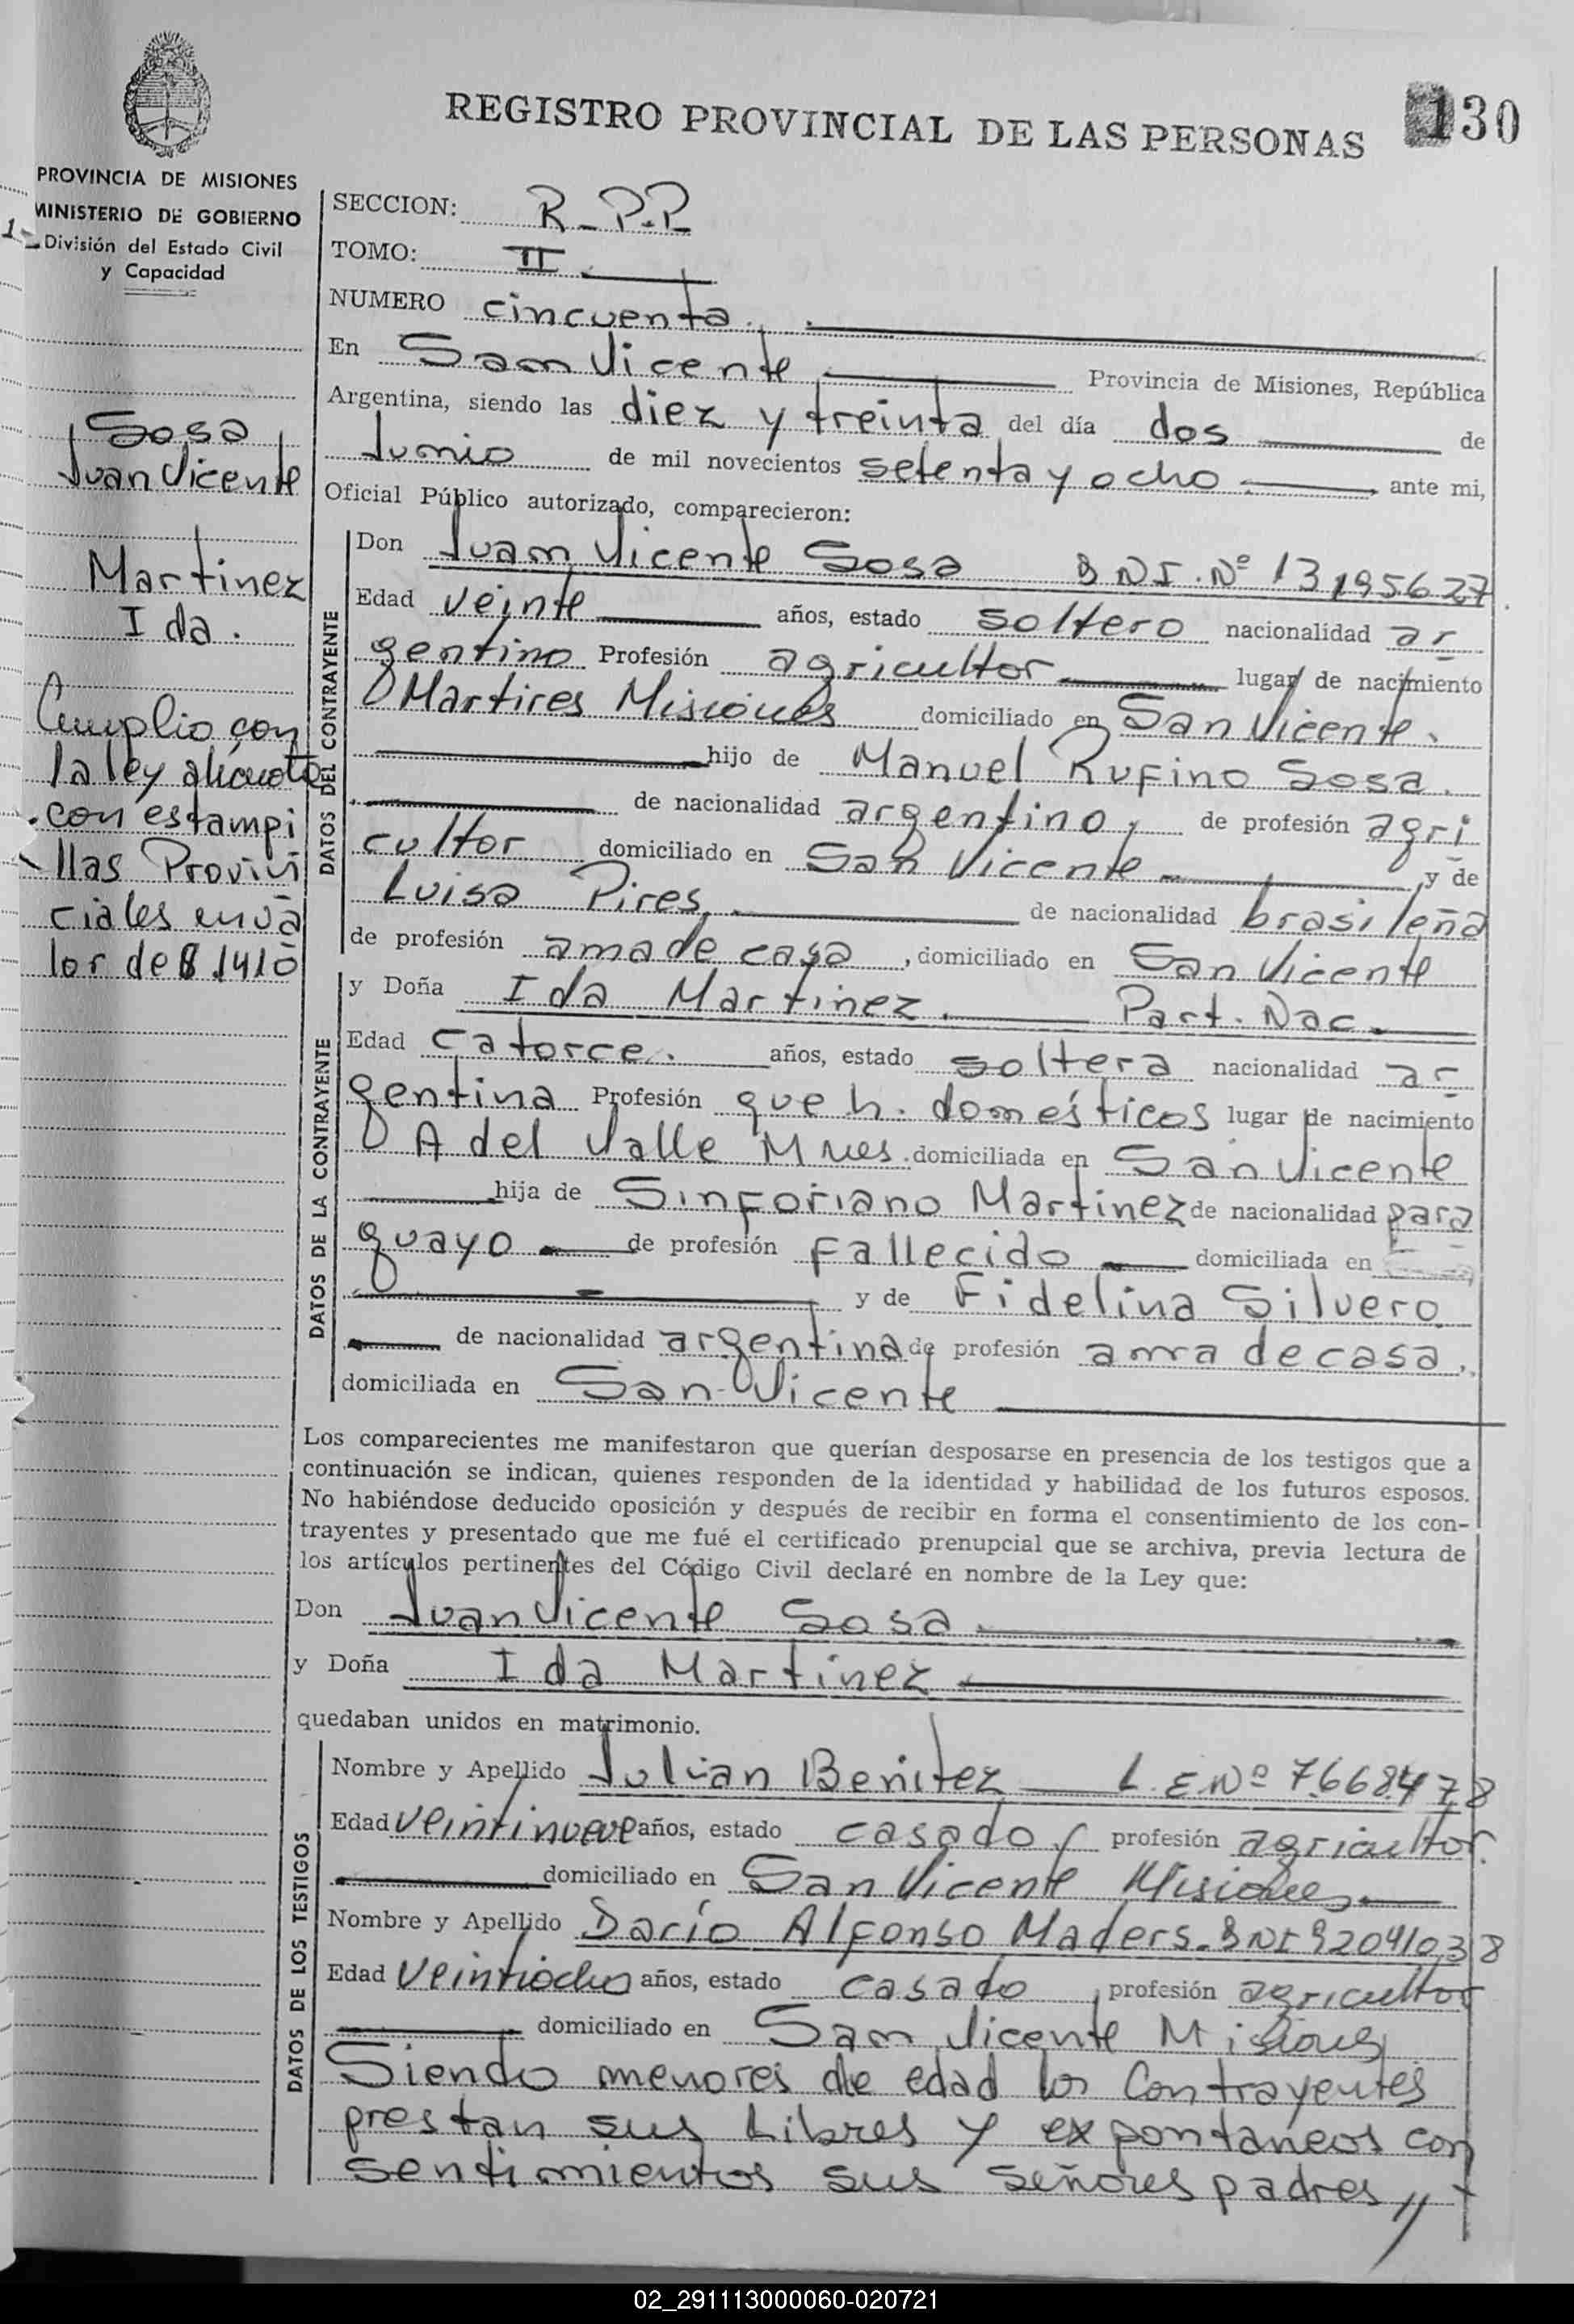 REGISTRO PROVINCIAL DE LAS PERSONAS
130
PROVINCIA DE MISIONES
MINISTERIO DE GOBIERNO
División del Estado Civil
y Capacidad
Sosa
Juan Vicente
Martinez
Ida.
Cumplio con
la ley alicuota
con estampi
llas Provin
ciales en va
lor de $ 1410
SECCION: R_P.P.
TOMO: II
NUMERO cincuenta.
En San Vicente Provincia de Misiones, República
Argentina, siendo las diez y treinta del día dos de
Junio de mil novecientos setenta y ocho. ante mi,
Oficial Público autorizado, comparecieron:
DATOS DEL CONTRAYENTE
Don Juan Vicente Sosa DNI. Nº 13195627
Edad veinte años, estado soltero nacionalidad ar
gentino Profesión agricultor lugar de nacimiento
Martires Misiones domiciliado en San Vicente.
hijo de Manuel Rufino Sosa.
de nacionalidad argentino, de profesión agri
cultor domiciliado en San Vicente y de
Luisa Pires, de nacionalidad brasileña
de profesión ama de casa, domiciliado en San Vicente
DATOS DE LA CONTRAYENTE
y Doña Ida Martinez. Part. Nac.
Edad Catorce. años, estado soltera nacionalidad ar
gentina Profesión queh. domésticos lugar de nacimiento
A del Valle Mnes. domiciliada en San Vicente
hija de Sinforiano Martinez de nacionalidad para
guayo de profesión Fallecido domiciliada en
y de Fidelina Silvero
de nacionalidad argentina de profesión ama de casa,
domiciliada en San Vicente
Los comparecientes me manifestaron que querían desposarse en presencia de los testigos que a
continuación se indican, quienes responden de la identidad y habilidad de los futuros esposos.
No habiéndose deducido oposición y después de recibir en forma el consentimiento de los con-
trayentes y presentado que me fué el certificado prenupcial que se archiva, previa lectura de
los artículos pertinentes del Código Civil declaré en nombre de la Ley que:
Don Juan Vicente Sosa
y Doña Ida Martinez
quedaban unidos en matrimonio.
DATOS DE LOS TESTIGOS
Nombre y Apellido Julian Benitez L.E.Nº 7.668.478
Edad veintinueve años, estado casado, profesión agricultor.
domiciliado en San Vicente Misiones
Nombre y Apellido Darío Alfonso Maders. DNI 92041038
Edad veintiocho años, estado casado, profesión agricultor
domiciliado en San Vicente Misiones
Siendo menores de edad los Contrayentes
prestan sus Libres y expontaneos con
sentimientos sus señores padres,,
02_291113000060-020721